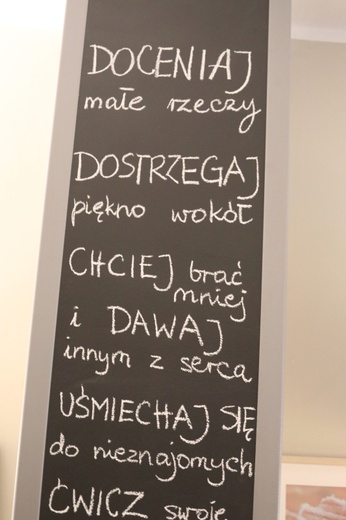 DOCENIAJ
małe rzeczy
DOSTRZEGAJ
piękno wokół
CHCIEJ brać
mniej
i DAWAJ
innym z serca
UŚMIECHAJ SIĘ
do nieznajomych
ĆWICZ swoje